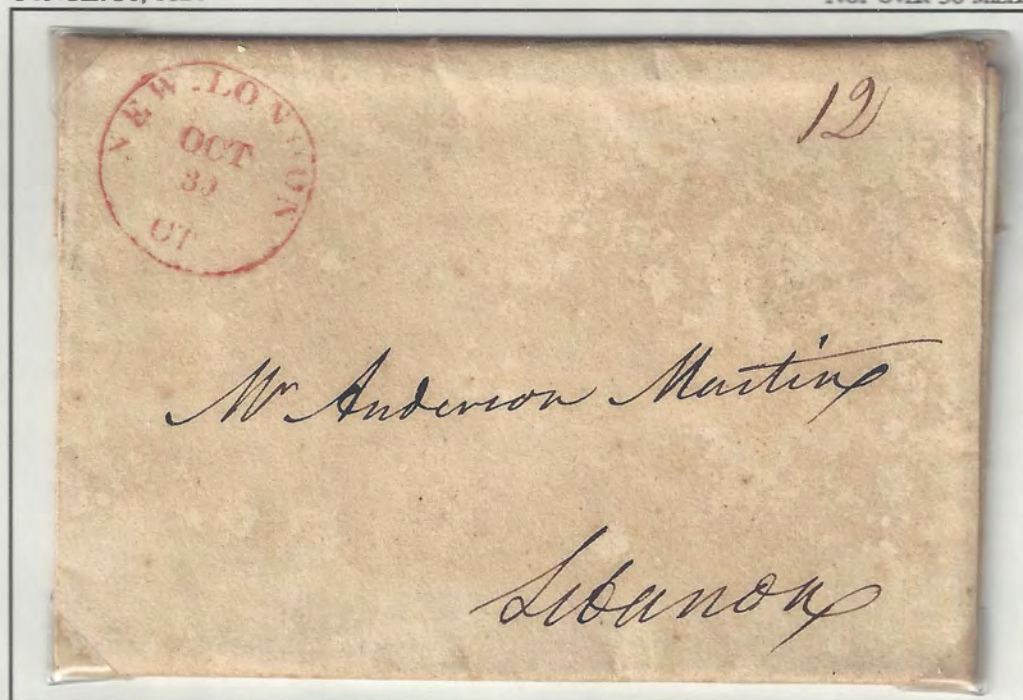 NEW-LONDON
OCT
30
CT
12
Mr Anderson Martin
Lebanon